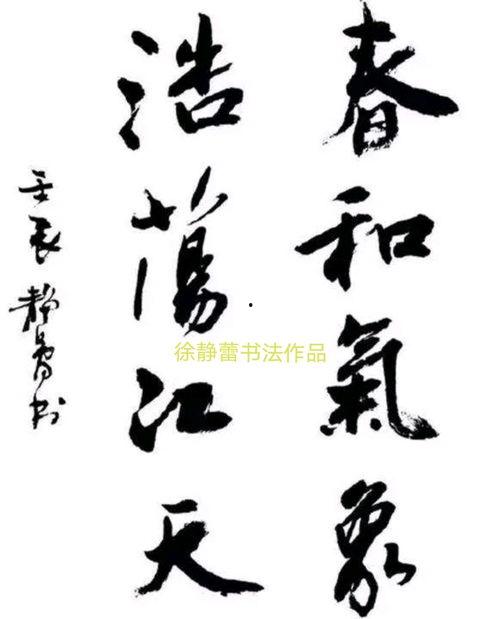 春和氣象
浩蕩江天
壬辰 静蕾书
徐静蕾书法作品